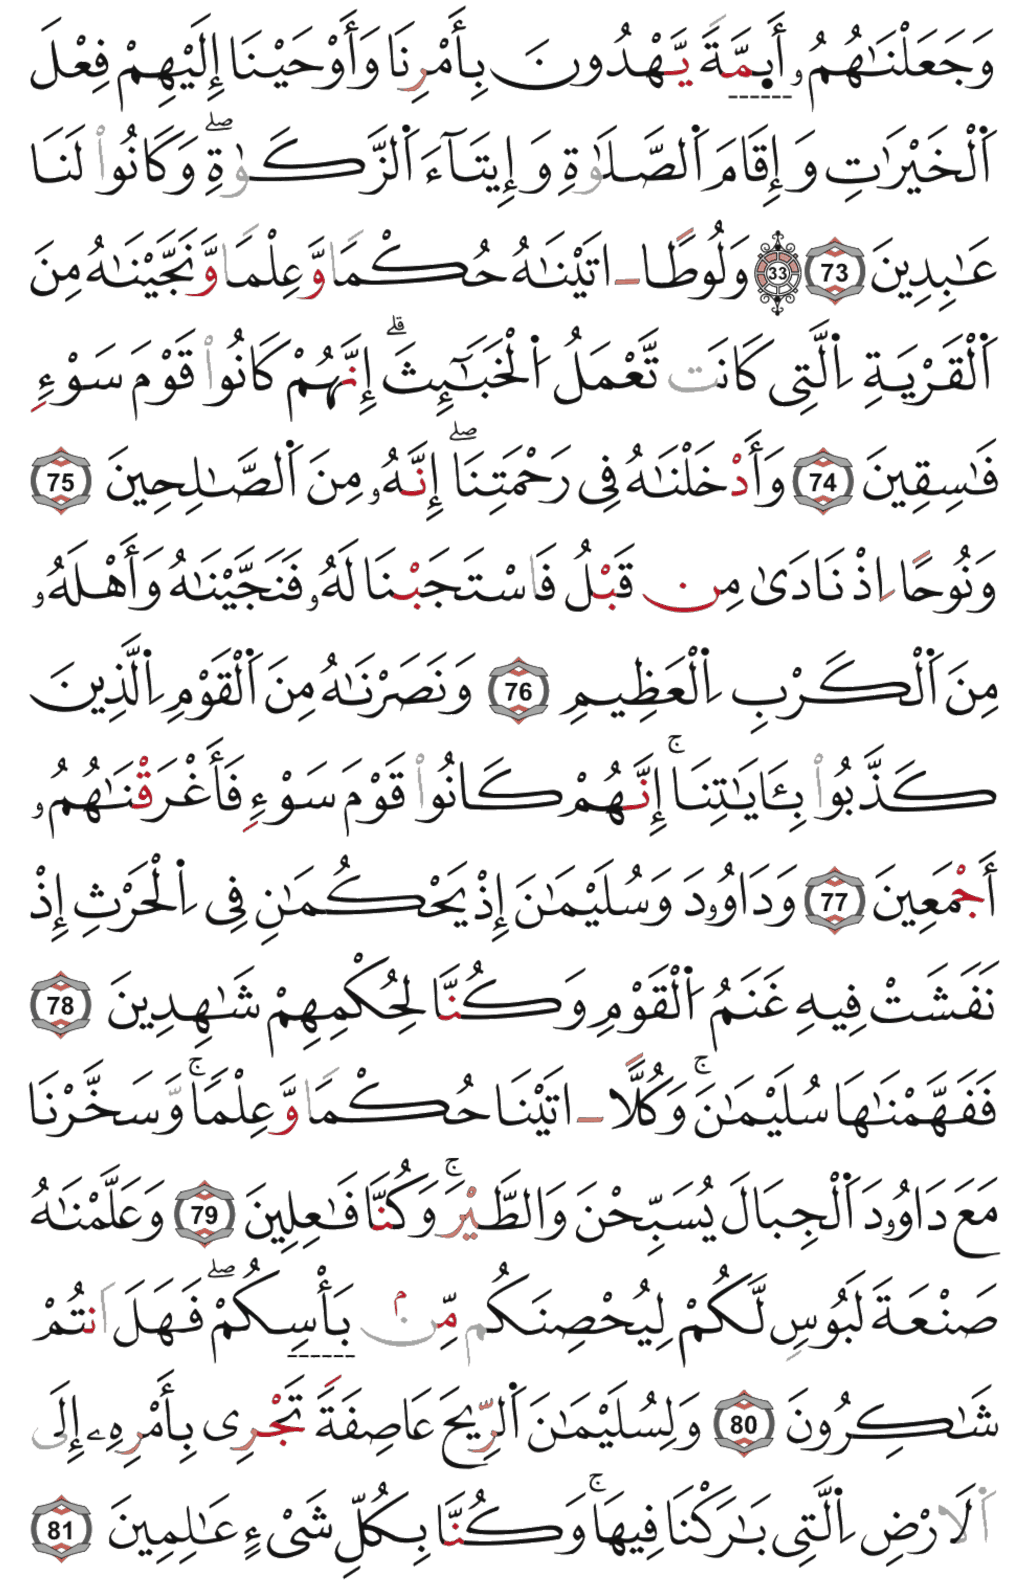 وَجَعَلْنَٰهُمُۥ أَي۪مَّةً يَهْدُونَ بِأَمْرِنَا وَأَوْحَيْنَا إِلَيْهِمْ فِعْلَ
اَ۬لْخَيْرَٰتِ وَإِقَامَ اَ۬لصَّلَوٰةِ وَإِيتَآءَ اَ۬لزَّكَوٰةِ ۖ وَكَانُواْ لَنَا
عَٰبِدِينَ 73 33 وَلُوطًا اتَيْنَٰهُ حُكْمًا وَّعِلْمًا وَّنَجَّيْنَٰهُ مِنَ
اَ۬لْقَرْيَةِ اِ۬لَّتِي كَانَت تَّعْمَلُ اُ۬لْخَبَٰٓئِثَ ۗ إِنَّهُمْ كَانُواْ قَوْمَ سَوْءٍ
فَٰسِقِينَ 74 وَأَدْخَلْنَٰهُ فِي رَحْمَتِنَا ۖ إِنَّهُۥ مِنَ اَ۬لصَّٰلِحِينَ 75
وَنُوحًا اِذْ نَادَىٰ مِن قَبْلُ فَاسْتَجَبْنَا لَهُۥ فَنَجَّيْنَٰهُ وَأَهْلَهُۥ
مِنَ اَ۬لْكَرْبِ اِ۬لْعَظِيمِ 76 وَنَصَرْنَٰهُ مِنَ اَ۬لْقَوْمِ اِ۬لَّذِينَ
كَذَّبُواْ بِـَٔايَٰتِنَا ۚ إِنَّهُمْ كَانُواْ قَوْمَ سَوْءٍ فَأَغْرَقْنَٰهُمُۥ
أَجْمَعِينَ 77 وَدَاوُۥدَ وَسُلَيْمَٰنَ إِذْ يَحْكُمَٰنِ فِي اِ۬لْحَرْثِ إِذْ
نَفَشَتْ فِيهِ غَنَمُ اُ۬لْقَوْمِ وَكُنَّا لِحُكْمِهِمْ شَٰهِدِينَ 78
فَفَهَّمْنَٰهَا سُلَيْمَٰنَ ۚ وَكُلًّا اتَيْنَا حُكْمًا وَّعِلْمًا ۚ وَّسَخَّرْنَا
مَعَ دَاوُۥدَ اَ۬لْجِبَالَ يُسَبِّحْنَ وَالطَّيْرَ ۚ وَكُنَّا فَٰعِلِينَ 79 وَعَلَّمْنَٰهُ
صَنْعَةَ لَبُوسٍ لَّكُمْ لِيُحْصِنَكُم مِّنۢ بَأْسِكُمْ ۖ فَهَلَ اَنتُمْ
شَٰكِرُونَ 80 وَلِسُلَيْمَٰنَ اَ۬لرِّيحَ عَاصِفَةً تَجْرِي بِأَمْرِهِۦ إِلَى
اَ۬لَارْضِ اِ۬لَّتِي بَٰرَكْنَا فِيهَا ۚ وَكُنَّا بِكُلِّ شَيْءٍ عَٰلِمِينَ 81